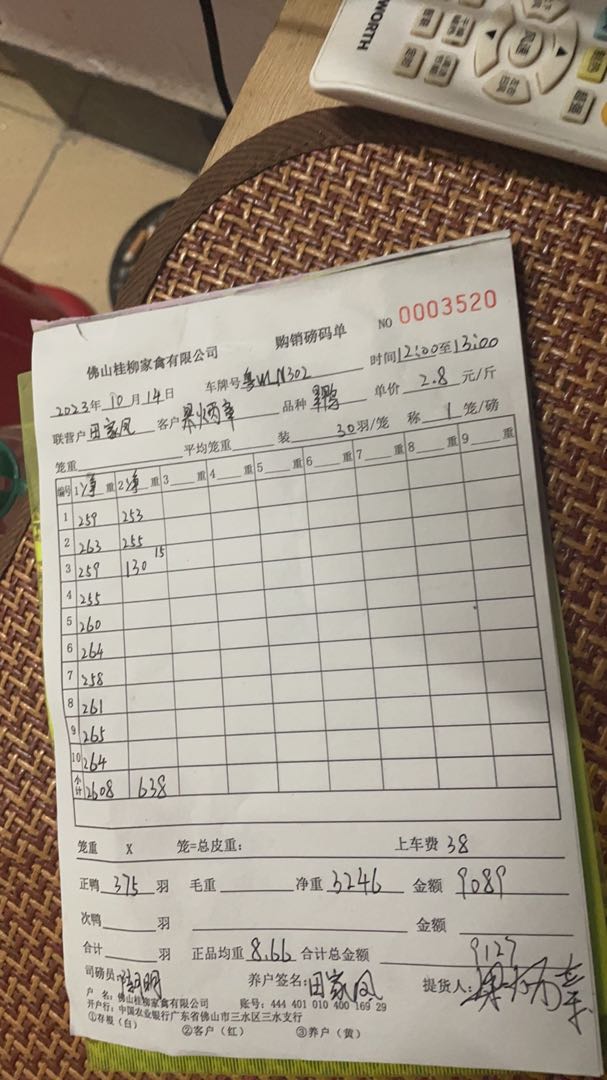 WORTH
风速
佛山桂柳家禽有限公司 购销磅码单 NO 0003520
2023年 10 月 14 日 车牌号 粤WLN302 时间 12:00至13:00
联营户 田家凤 客户 品种 单价 2.8 元/斤
笼重 平均笼重 装 30 羽/笼 称 1 笼/磅
编号 1 净 重 2 净 重 3 重 4 重 5 重 6 重 7 重 8 重 9 重
1 259 253
2 263 255
3 259 130 15
4 255
5 260
6 264
7 258
8 261
9 265
10 264
小计 2608 638
笼重 X 笼=总皮重: 上车费 38
正鸭 375 羽 毛重 净重 3246 金额 9089
次鸭 羽 金额
合计 羽 正品均重 8.66 合计总金额 9127
司磅员: 养户签名: 田家凤 提货人:
户 名: 佛山桂柳家禽有限公司 账号: 444 401 010 400 169 29
开户行: 中国农业银行广东省佛山市三水区三水支行
①存根（白） ②客户（红） ③养户（黄）